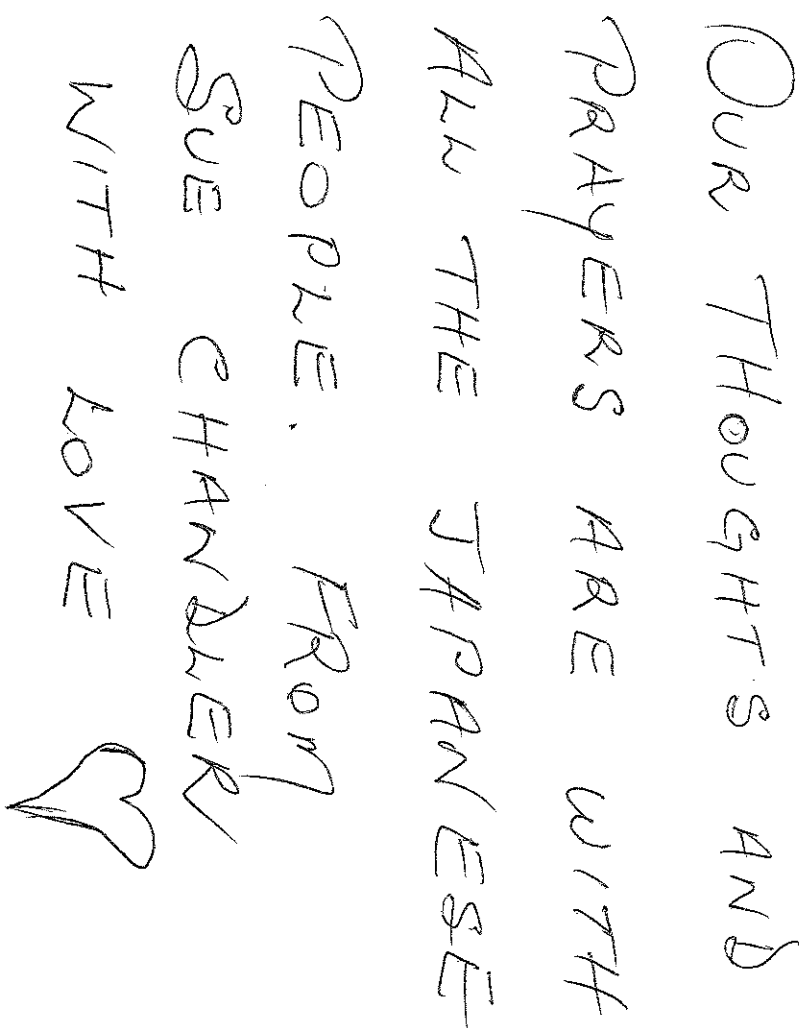 OUR THOUGHTS AND
PRAYERS ARE WITH
ALL THE JAPANESE
PEOPLE. FROM
SUE CHANDLER
WITH LOVE